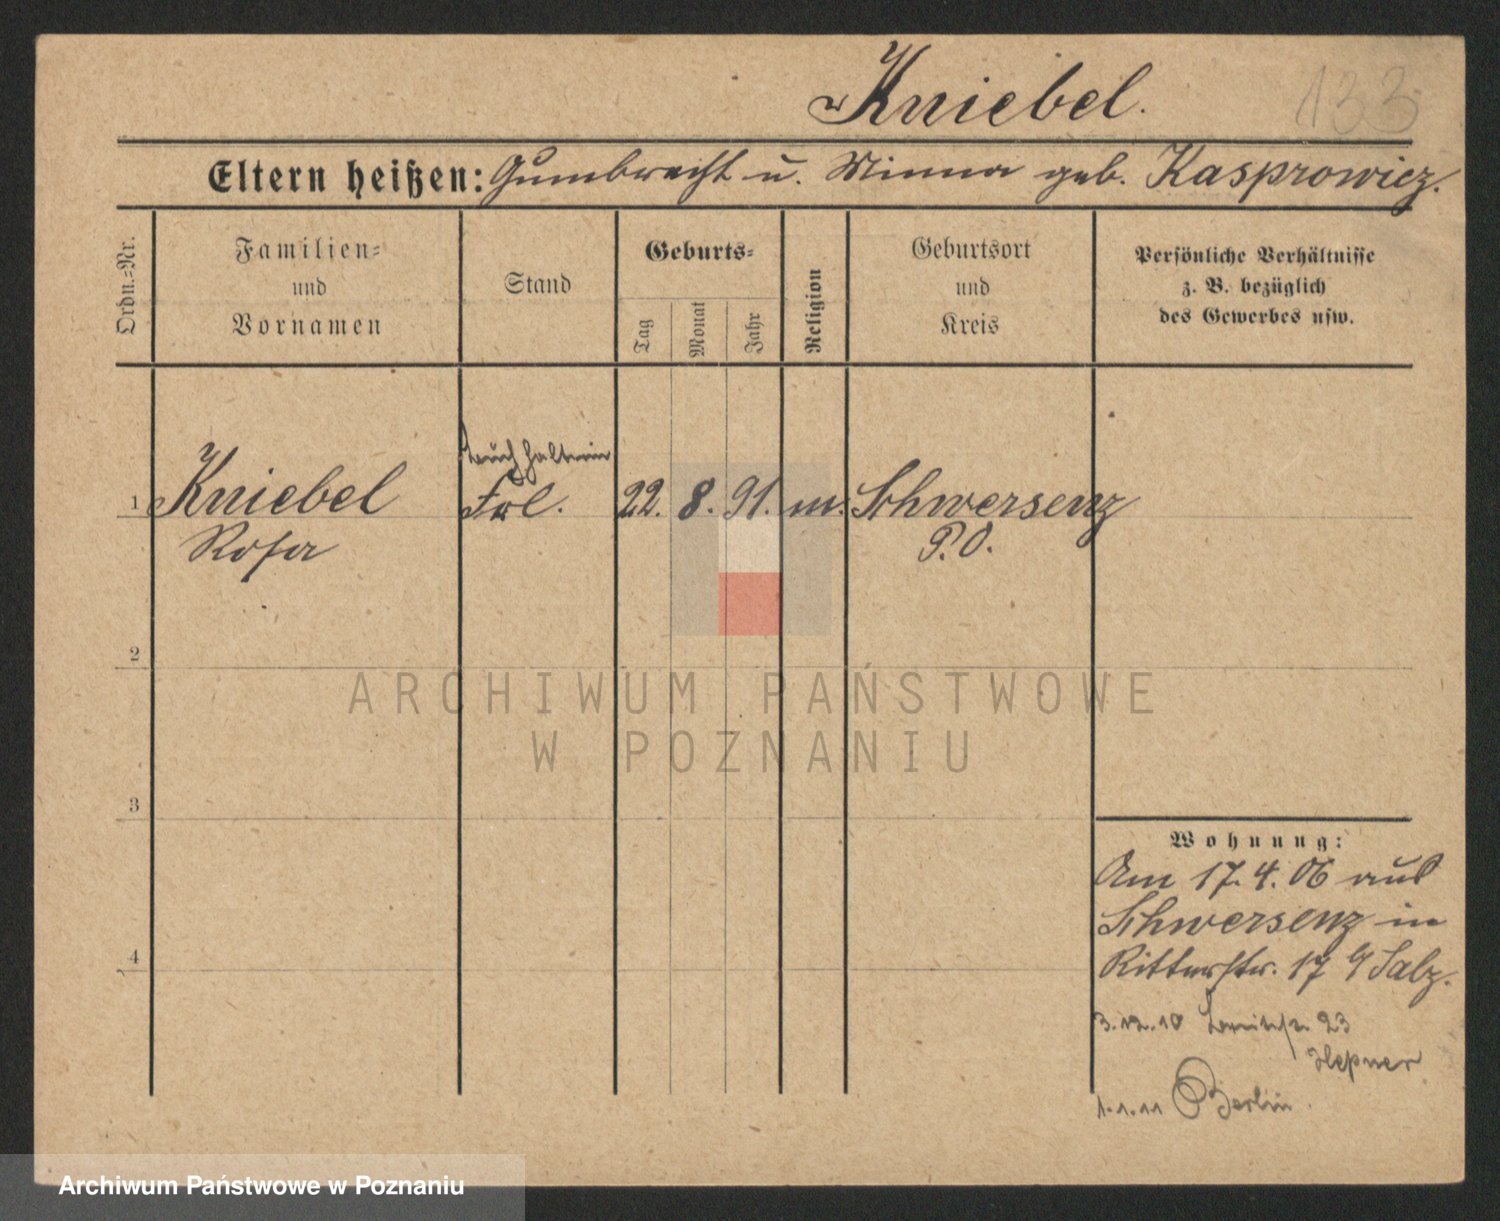 Kniebel.
133
Eltern heißen: Gumbrecht u. Minna geb. Kasprowicz.
Ordn.=Nr.
Familien=
und
Vornamen
Stand
Geburts=
Tag
Monat
Jahr
Religion
Geburtsort
und
Kreis
Persönliche Verhältnisse
z. B. bezüglich
des Gewerbes usw.
Buchhalterin
1 Kniebel Frl. 22. 8. 91. m. Schwersenz
Rosa P. O.
2
ARCHIWUM PAŃSTWOWE
W POZNANIU
3
Wohnung:
Am 17. 4. 06 aus
Schwersenz in
Ritterstr. 17 Salz.
4
3.12.10 23
Hepner
1.1.11 Berlin.
Archiwum Państwowe w Poznaniu